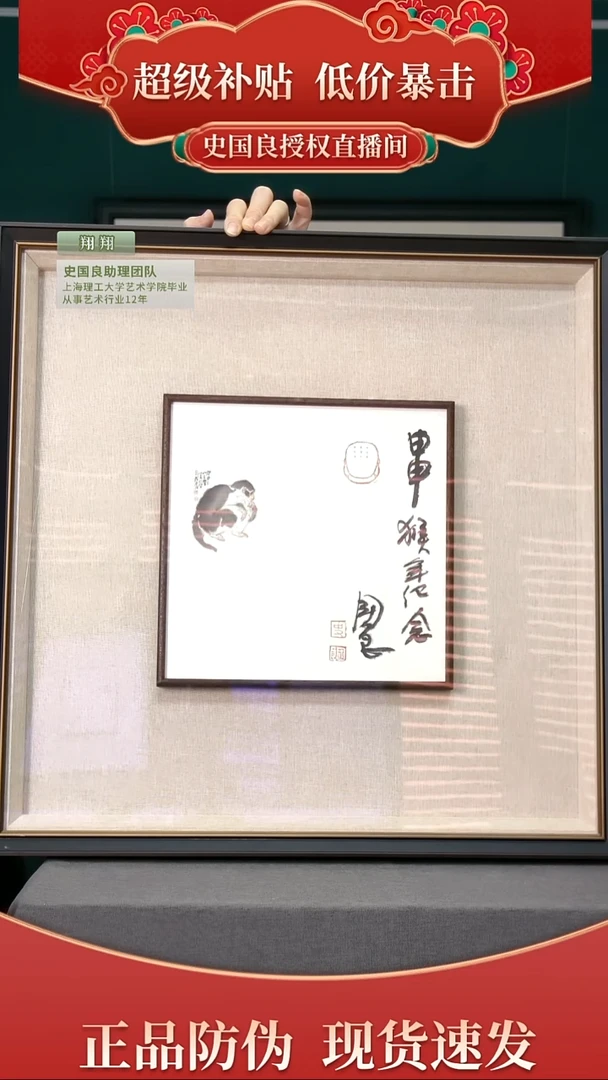 超级补贴 低价暴击
史国良授权直播间
翔翔
史国良助理团队
上海理工大学艺术学院毕业
从事艺术行业12年
申
猴年纪念
国良
正品防伪 现货速发